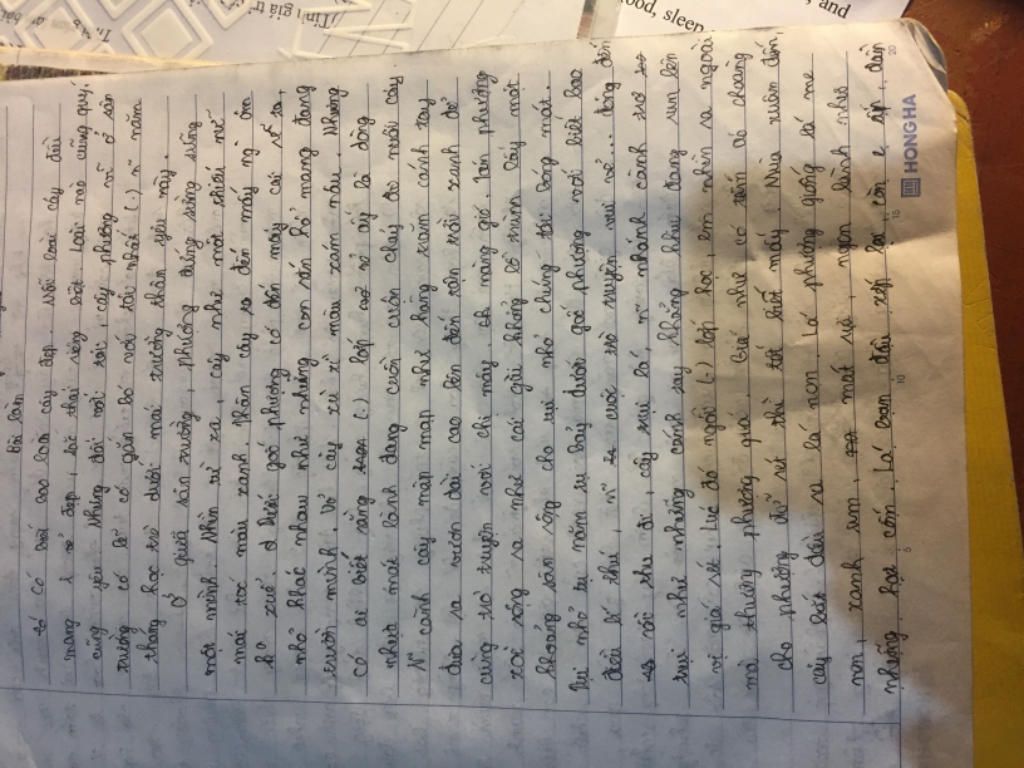 Bài làm
có biết bao loài cây đẹp. Mỗi loài cây đều
mang 1 vẻ đẹp, sắc thái riêng biệt. Loài nào cũng quý,
cũng yêu. Nhưng đối với tôi, cây phượng vĩ ở sân
trường có lẽ có gắn bó với tôi nhất (.) n~ năm
tháng học trò dưới mái trường thân yêu này.
Ở giữa sân trường, phượng đứng sừng sững
một mình. Nhìn từ xa, cây như một thiếu nữ
mái tóc màu xanh. Thân cây to đến mấy ng ôm
k° xuể. Dưới gốc phượng có đến mấy cái rễ to,
nhỏ khác nhau như những con rắn hổ mang đang
trườn mình. Vỏ cây xù xì màu xám nâu. Nhưng
có ai biết rằng (.) lớp vỏ ấy là dòng
nhựa mát lành đang cuồn cuộn chảy để nuôi cây
N~ cành cây mập mạp như hàng trăm cánh tay
đưa ra vươn dài cao lên đến tận trời xanh để
cùng trò truyện với chị mây, ch nàng gió. Tán phượng
xoè rộng ra như cái gùi khổng lồ trùm lấy một
khoảng sân rộng cho lũ nhỏ chúng tôi bóng mát.
Tụi nhỏ tụ năm tụ bảy dưới gốc phượng mới biết bao
điều lí thú, n~ cuộc trò truyện vui vẻ... đông đến
rồi thu đi, cây trụi lá, n~ nhánh cành trơ
trụi như những cánh tay khẳng khiu đang run lên
vị giá rét. Lúc đó ngồi (.) lớp học, em nhìn ra ngoài
mà thương phượng quá. Giá như có tấm áo choàng
cho phượng đỡ rét thì tốt biết mấy. Mùa xuân đến,
cây bắt đầu ra lá non. Lá phượng giống lá me
non, xanh um, mát rượi, ngon lành như
những hạt cốm. Lá ban đầu xếp lại, còn e ấp, dần
HONG HA
5
10
15
20
food, sleep
, and